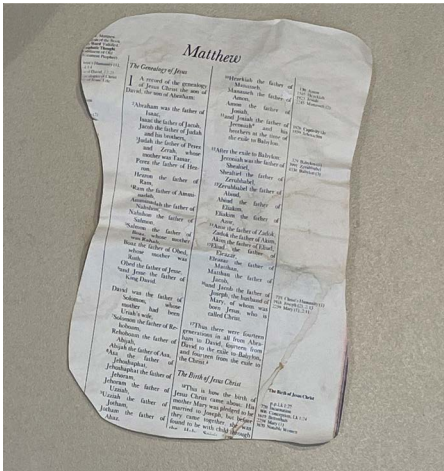 Matthew
The Genealogy of Jesus
1 A record of the genealogy
of Jesus Christ the son of
David, the son of Abraham:
²Abraham was the father of
Isaac,
Isaac the father of Jacob,
Jacob the father of Judah
and his brothers,
³Judah the father of Perez
and Zerah, whose
mother was Tamar,
Perez the father of Hez-
ron,
Hezron the father of
Ram,
⁴Ram the father of Ammi-
nadab,
Amminadab the father of
Nahshon,
Nahshon the father of
Salmon,
⁵Salmon the father of
Boaz, whose mother
was Rahab,
Boaz the father of Obed,
whose mother was
Ruth,
Obed the father of Jesse,
⁶and Jesse the father of
King David.
David was the father of
Solomon, whose
mother had been
Uriah's wife,
⁷Solomon the father of Re-
hoboam,
Rehoboam the father of
Abijah,
Abijah the father of Asa,
⁸Asa the father of
Jehoshaphat,
Jehoshaphat the father of
Jehoram,
Jehoram the father of
Uzziah,
⁹Uzziah the father of
Jotham,
Jotham the father of
Ahaz,
¹⁰Hezekiah the father of
Manasseh,
Manasseh the father of
Amon,
Amon the father of
Josiah,
¹¹and Josiah the father of
Jeconiah and his
brothers at the time of
the exile to Babylon.
¹²After the exile to Babylon:
Jeconiah was the father of
Shealtiel,
Shealtiel the father of
Zerubbabel,
¹³Zerubbabel the father of
Abiud,
Abiud the father of
Eliakim,
Eliakim the father of
Azor,
¹⁴Azor the father of Zadok,
Zadok the father of Akim,
Akim the father of Eliud,
¹⁵Eliud the father of
Eleazar,
Eleazar the father of
Matthan,
Matthan the father of
Jacob,
¹⁶and Jacob the father of
Joseph, the husband of
Mary, of whom was
born Jesus, who is
called Christ.
¹⁷Thus there were fourteen
generations in all from Abra-
ham to David, fourteen from
David to the exile to Babylon,
and fourteen from the exile to
the Christ.
The Birth of Jesus Christ
¹⁸This is how the birth of
Jesus Christ came about: His
mother Mary was pledged to be
married to Joseph, but before
they came together, she was
found to be with child through
The Birth of Jesus Christ